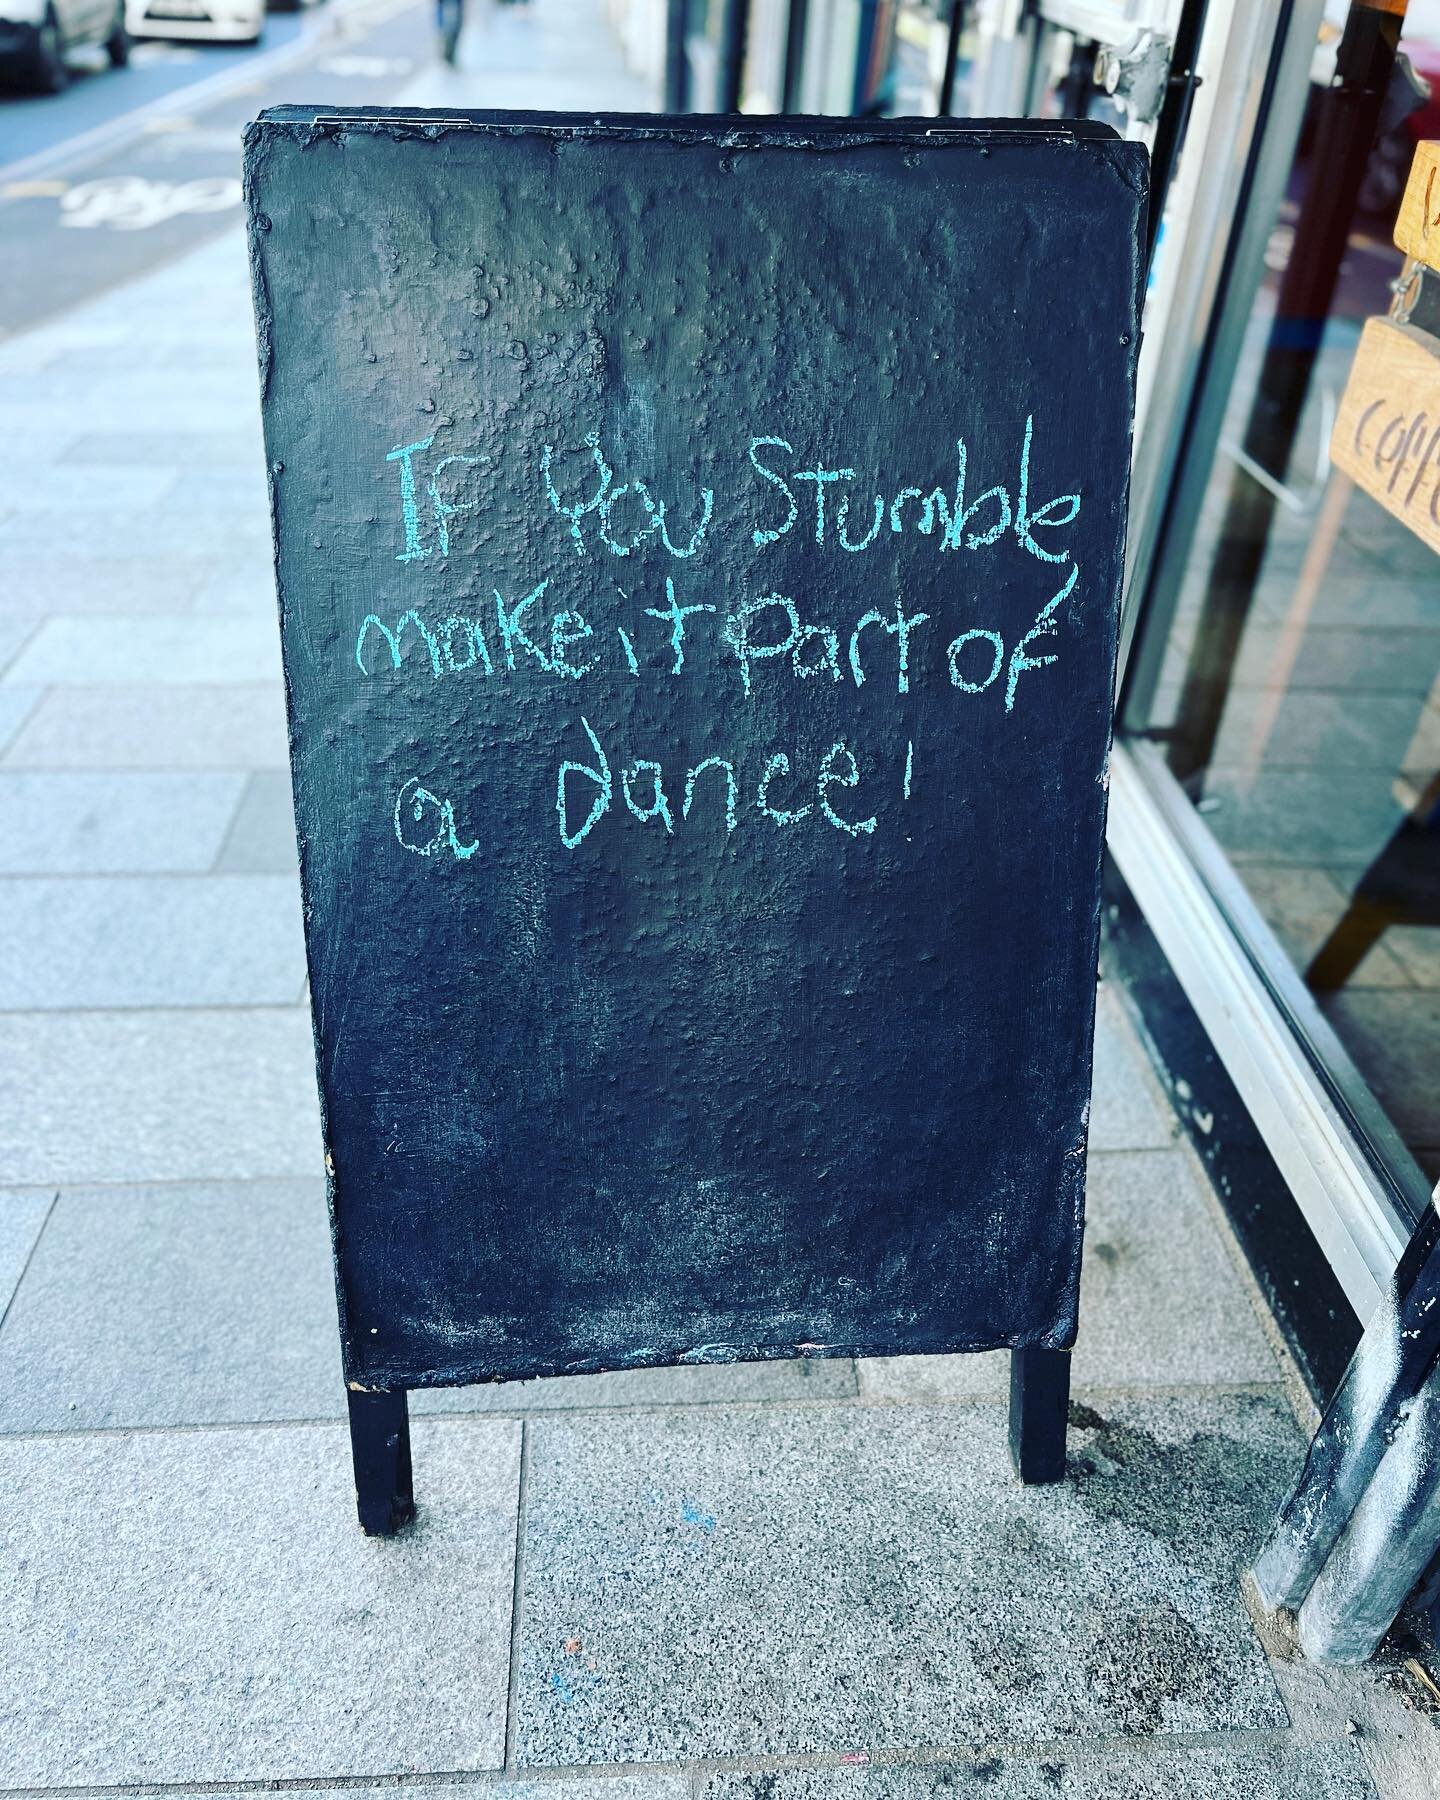 If You Stumble
make it part of
a dance!